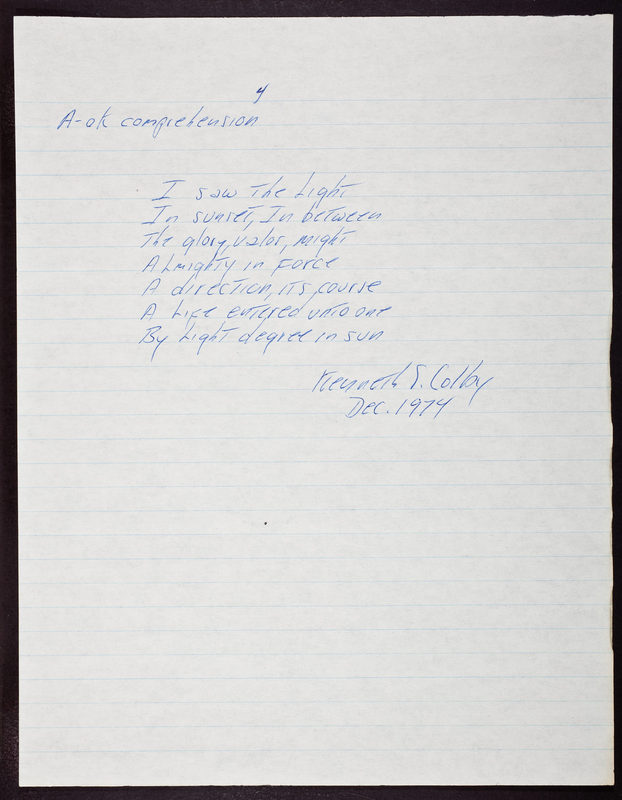 4
A-ok comprehension
I saw the Light
In sunset, In between
The glory, valor, might
ALmighty in force
A direction, its course
A Life entered unto one
By Light degree in sun
Kenneth S. Colby
Dec. 1974